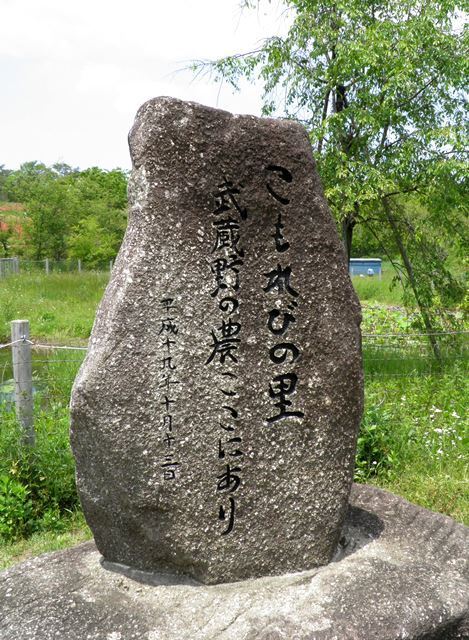 こもれびの里
武蔵野の農ここにあり
平成十九年十月十三日